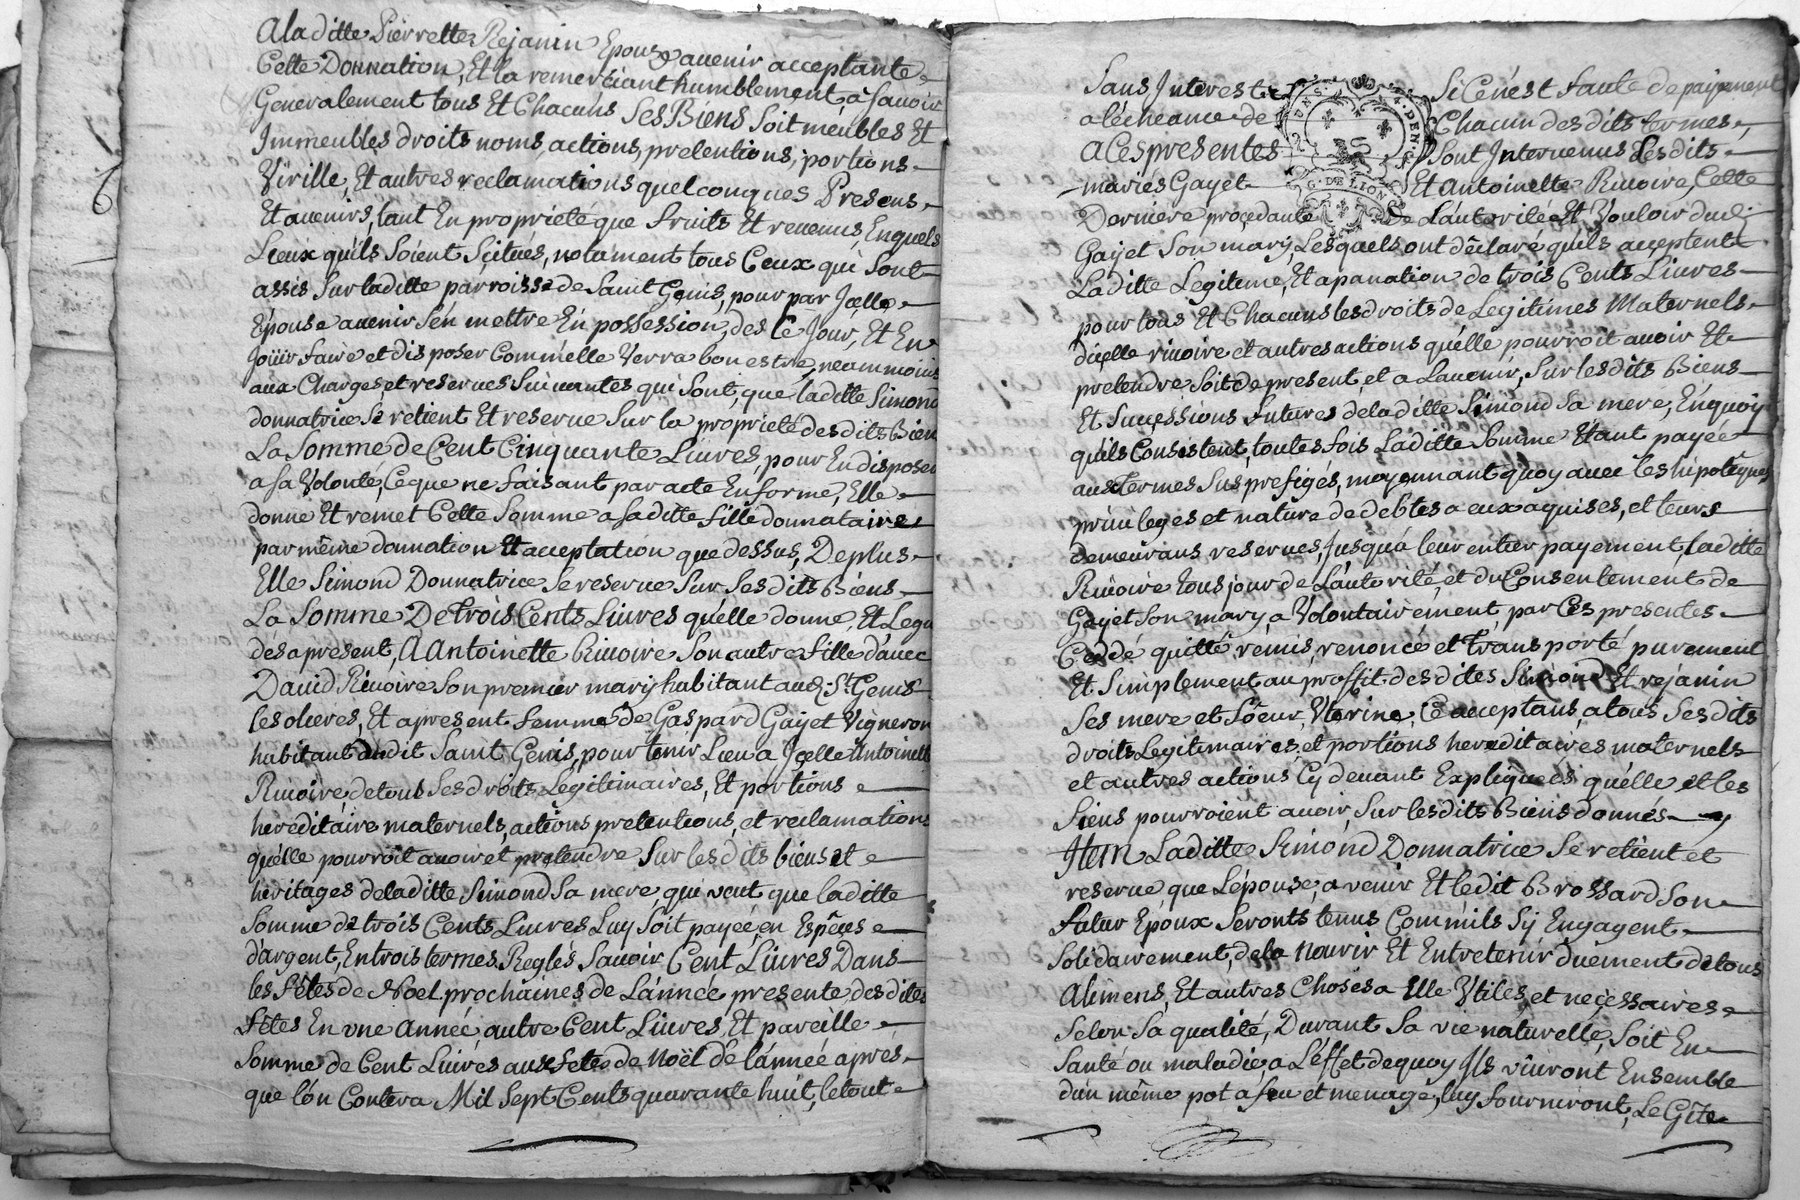 A la ditte Pierrette Rejanin Epouse avenir acceptante
Cette Donnation, Et la remerciant humblement, a savoir
Generalement tous Et Chacuns ses Biens soit méubles Et
Immeubles droits noms, actions, pretentions, portions
Virille, Et autres reclamations quelconques Presens
Et avenirs, tant En proprieté que fruits Et revenus, En quels
Lieux quils soient scitués, notament tous Ceux qui sont
assis sur laditte parroisse de Saint Genis, pour par Jcelle
Epouse avenir s'en mettre En possession, des Ce Jour, Et En
Joüir faire et disposer Comm'elle Verra bon estre, neammoins
aux Charges, et reserves suivantes, qui sont, que laditte Simond
donnatrice se retient Et reserve sur la proprieté desdits Bien
La somme de Cent Cinquante Livres, pour En disposer
a sa Volonté, Ce que ne faisant par acte En forme, Elle
donne Et remet Cette somme a saditte fille donnataire
par même donnation Et acceptation que dessus, De plus
Elle Simond Donnatrice se reserve sur ses dits Biens
La somme De trois Cents Livres qu'elle donne, Et Legu
dés apresent, A Antoinette Rivoire son autre fille d'avec
David Rivoire son premier mary habitant aud. St. Genis
les olieres, Et apresent femme de Gaspard Gayet Vigneron
habitant dudit Saint Genis, pour tenir Lieu a Jcelle Antoinett
Rivoire de tous ses droits Legitimaires, Et portions
hereditaire maternels, actions pretentions, et reclamations
qu'elle pourroit avoir et pretendre sur lesdits biens et
heritages de laditte Simond sa mere, qui veut que laditte
somme de trois Cents Livres Luy soit payée en Espêces
d'argent, En trois termes Reglés savoir Cent Livres Dans
les fêtes de Noel prochaines de L'année presente, desdites
fêtes En une année, autre Cent Livres, Et pareille
somme de Cent Livres aux fetes de Noël de l'année aprés
que l'on Contera Mil Sept Cents quarante huit, le tout
Sans Interest Si Ce n'est faute de payement
a l'écheance de Chacun des dits termes,
GDES 4 DENI
A Ces presentes sont Intervenus Lesdits
mariés Gayet Et Antoinette Rivoire, Cette
G. DE LION
Derniere procedante De L'autorité Et Vouloir dud.
Gayet son mary, Lesquels ont déclaré qu'ils acceptent
Laditte Legitime, Et apanation de trois Cents Livres
pour tous Et Chacuns les droits de Legitimes Maternels
d'icelle rivoire et autres actions qu'elle pourroit avoir Et
pretendre soit de present, et a L'avenir, sur lesdits Biens
Et successions futures de laditte Simond sa mere, En quoy
qu'ils Consistent, toutes fois Laditte somme Etant payée
aux termes sus prefigés, moyennant quoy avec les hipotéques
privileges et nature de debtes a eux aquises, et leurs
demeurans reserves, Jusqu'a leur entier payement, laditte
Rivoire tousjour de L'autorité, et du Consentement de
Gayet son mary, a Volontairement, par Ces presentes
Ceddé, quitté, remis, renoncé et transporté, purement
Et simplement au proffit desdites Simond Et rejanin
ses mere et Sœur, Vterine, Ce acceptans, a tous ses dits
droits Legitimaires, et portions hereditaires maternels
et autres actions Cy devant Expliquées qu'elle et les
siens pourroient avoir sur lesdits Biens donnés
Item Laditte Simond Donnatrice se retient et
reserve que L'épouse a venir Et ledit Brossard son
futur Epoux seronts tenus Comm'ils s'y Engagent
solidairement, de la nourir Et Entretenir düement de tous
Alimens, Et autres Choses a Elle Vtiles, et neçessaires
selon sa qualité, Durant sa vie naturelle, soit En
santé ou maladie, a L'effet de quoy Ils viuront Ensemble
d'un même pot a feu et menage, luy fourniront, Le Gîte